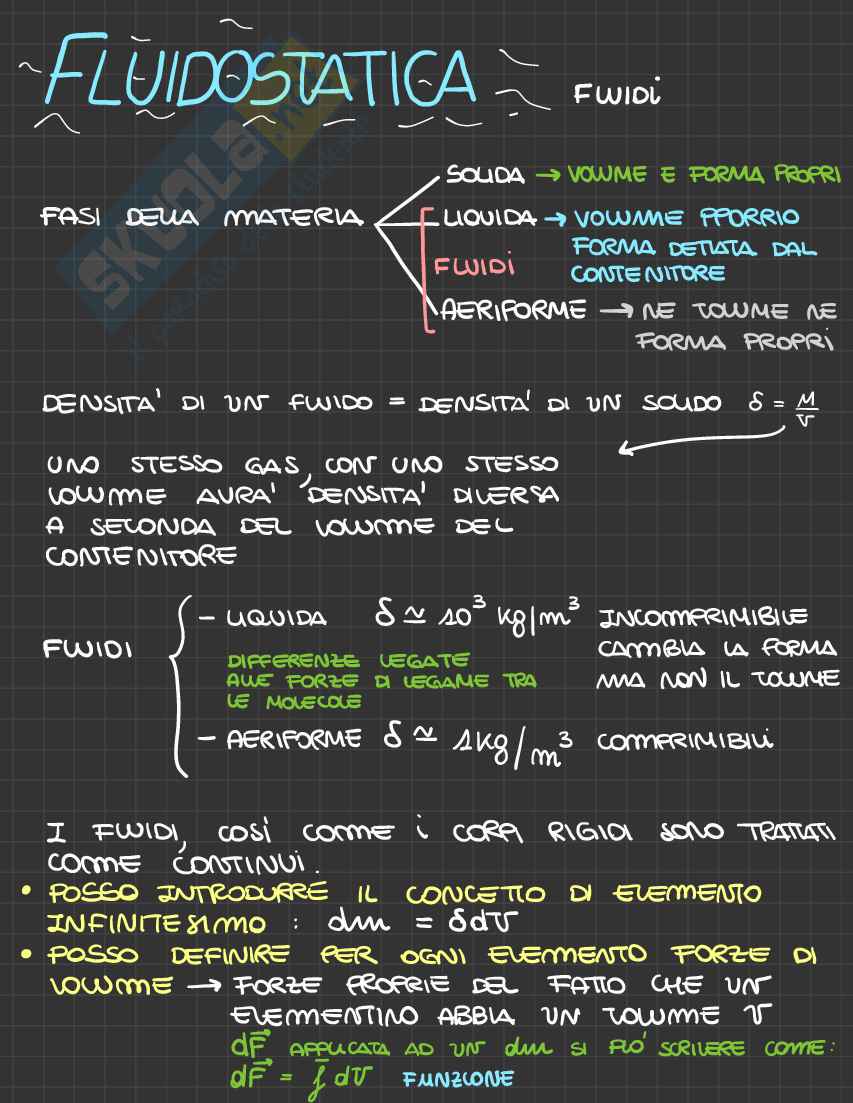 FLUIDOSTATICA FLUIDi
SOLIDA → VOLUME E FORMA PROPRI
FASI DELLA MATERIA LIQUIDA → VOLUME PPORRIO
FORMA DETTATA DAL
FLUIDi CONTENITORE
AERIFORME → NE VOLUME NE
FORMA PROPRi
DENSITA' DI UN FLUIDO = DENSITA' DI UN SOLIDO δ = M/V
UNO STESSO GAS, CON UNO STESSO
VOLUME AVRA' DENSITA' DIVERSA
A SECONDA DEL VOLUME DEL
CONTENITORE
FLUIDI
- LIQUIDA δ ≃ 10³ kg/m³ INCOMPRIMIBILE
CAMBIA LA FORMA
MA NON IL VOLUME
DIFFERENZE LEGATE
ALLE FORZE DI LEGAME TRA
LE MOLECOLE
- AERIFORME δ ≃ 1kg/m³ COMPRIMIBILi
I FLUIDI, COSÌ COME i CORPI RIGIDI SONO TRATTATI
COME CONTINUI.
• POSSO INTRODURRE IL CONCETTO DI ELEMENTO
INFINITESIMO : dm = δdV
• POSSO DEFINIRE PER OGNI ELEMENTO FORZE DI
VOLUME → FORZE PROPRIE DEL FATTO CHE UN
ELEMENTINO ABBIA UN VOLUME V
dF⃗ APPLICATA AD UN dm SI PUÒ SCRIVERE COME:
dF⃗ = f̄ dV FUNZIONE
SKUOLA.net